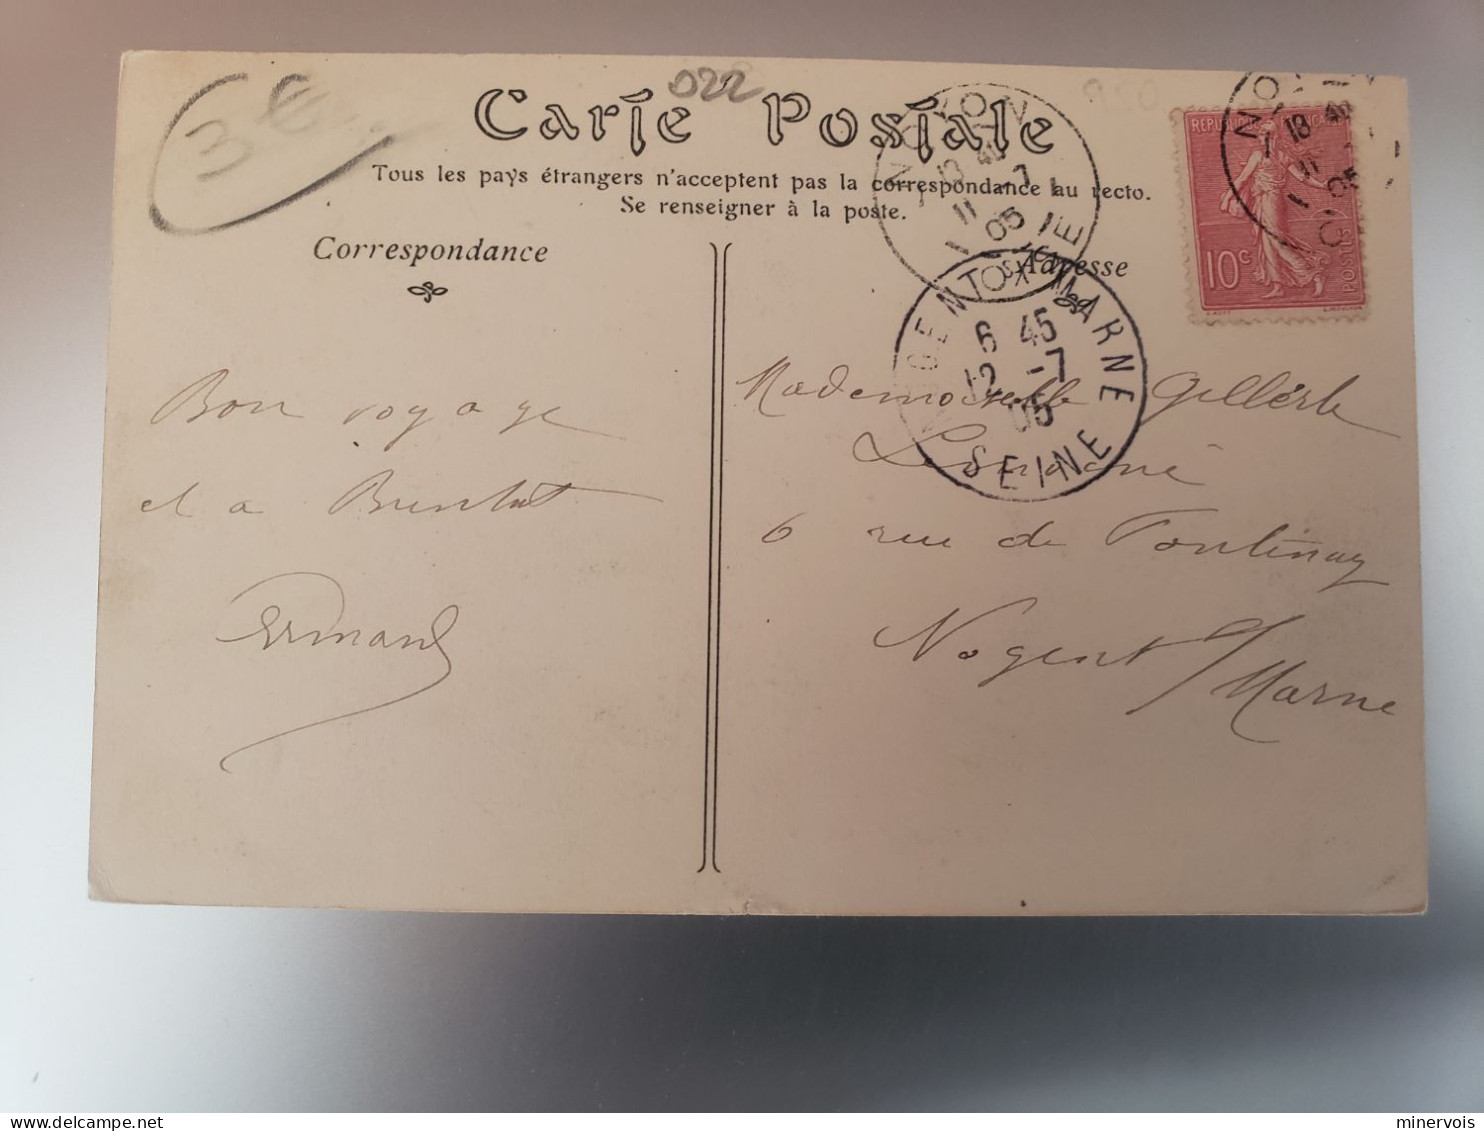 3 €
022
Carte Postale
Tous les pays étrangers n'acceptent pas la correspondance au recto.
Se renseigner à la poste.
Correspondance
Adresse
NOYON
18 40
11 -7
05
OISE
NOGENT-S-MARNE
6 45
12 -7
05
SEINE
NO
18 40
11
05
O
REPUBLIQUE FRANCAISE
10c
POSTES
Bon voyage
et a
Mademoiselle
6 rue de Fontenay
Nogent s/ Marne
minervois